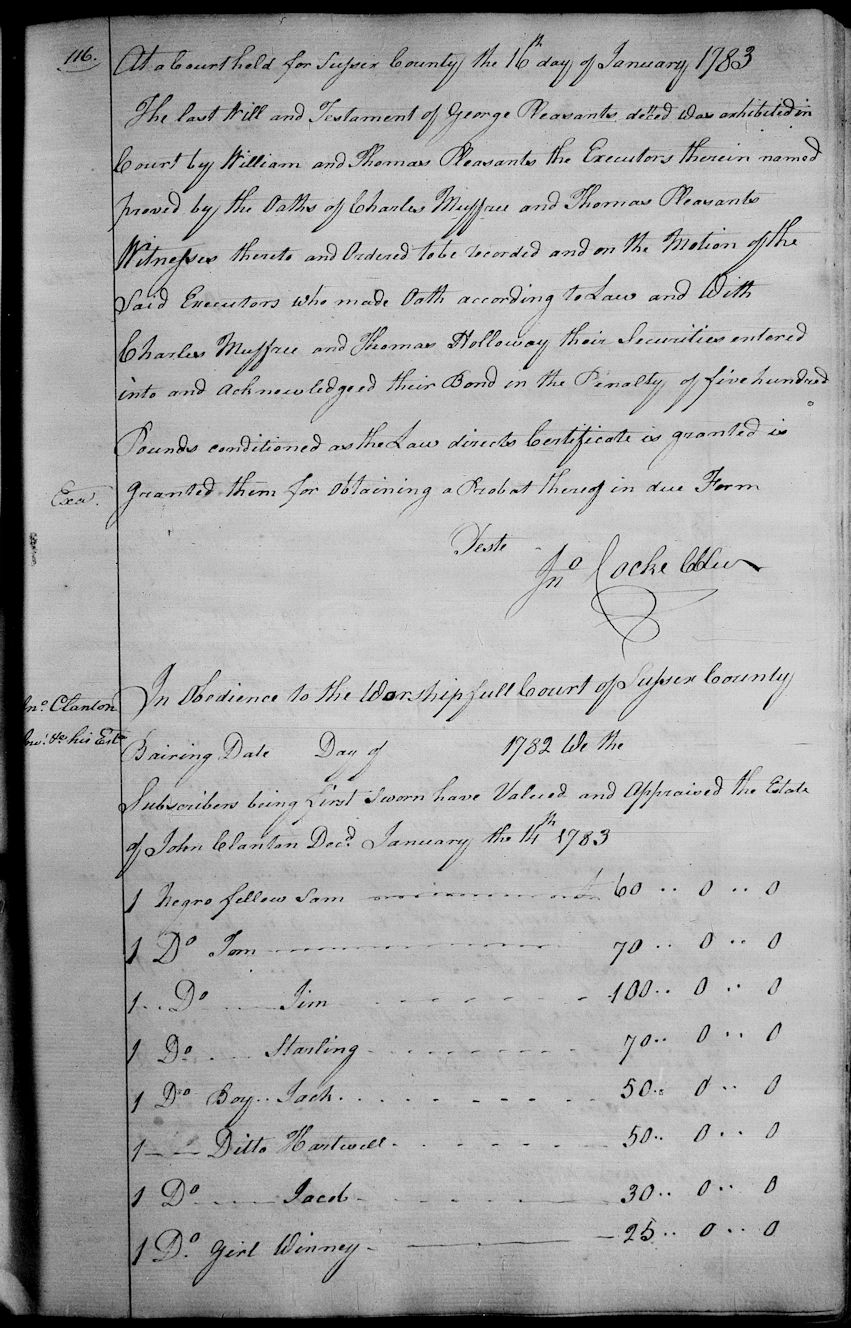 116.
At a Court held for Sussex County the 16th day of January 1783
The last Will and Testament of George Pleasants deced was exhibited in
Court by William and Thomas Pleasants the Executors therein named
proved by the Oaths of Charles Mussree and Thomas Pleasants
Witnesses thereto and Ordered to be recorded and on the Motion of the
Said Executors who made Oath according to Law and With
Charles Mussree and Thomas Holloway their Securities entered
into and Acknowledgeed their Bond in the Penalty of five hundred
Pounds conditioned as the Law directs Certificate is granted is
Exa.
Granted them for Obtaining a Probat thereof in due Form
Teste
Jno Cocke
Jno. Clanton
Inv. &c his Este
In Obedience to the Worshipfull Court of Sussex County
Bairing Date Day of 1782 We the
Subscribers being First Sworn have Valued and Appraised the Estate
of John Clanton Decd. January the 14th 1783
1 Negro fellow Sam £ 60 .. 0 .. 0
1 Do Tom 70 .. 0 .. 0
1 .. Do Jim 100 .. 0 .. 0
1 Do Starling 70 .. 0 .. 0
1 Do Boy .. Jack 50 .. 0 .. 0
1 Ditto Hartwell 50 .. 0 .. 0
1 Do Jacob 30 .. 0 .. 0
1 Do. Girl Winney 25 .. 0 .. 0